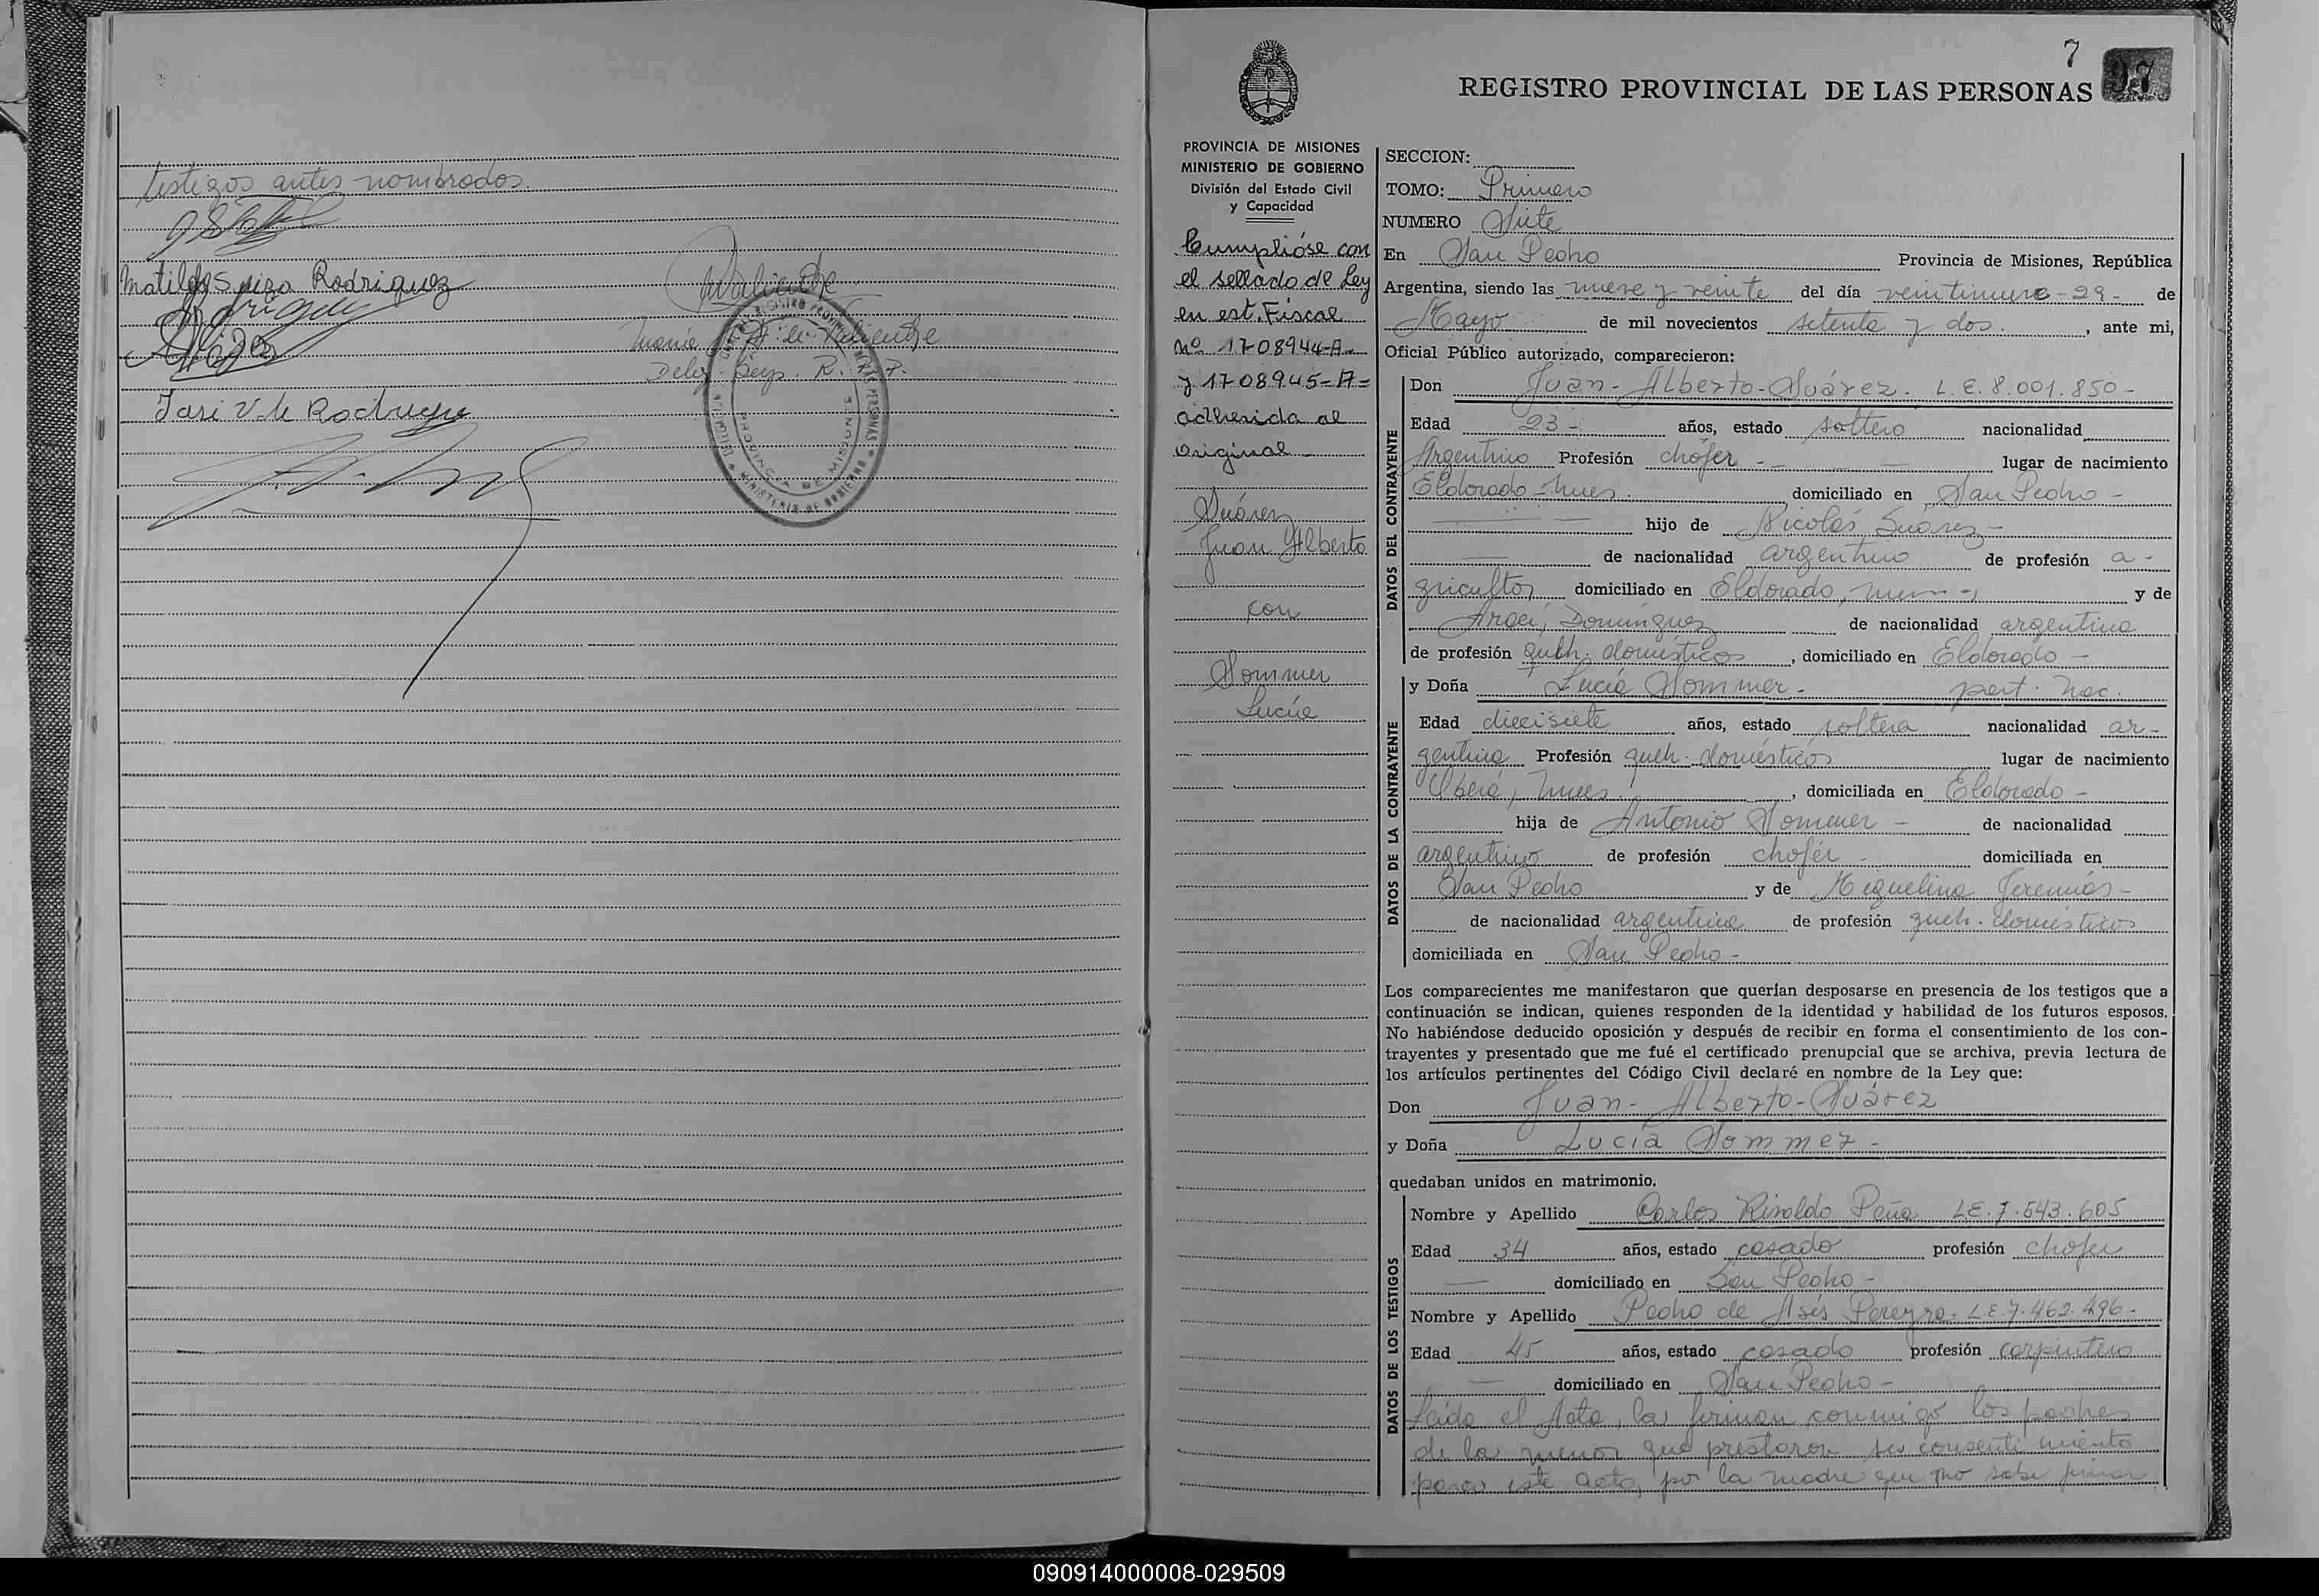 testigos antes nombrados.
Matilde Rodriguez
Valiente
María de Valiente
Deleg. R. P.
MINISTERIO DE GOBIERNO
PROVINCIA DE MISIONES
7
97
REGISTRO PROVINCIAL DE LAS PERSONAS
PROVINCIA DE MISIONES
MINISTERIO DE GOBIERNO
División del Estado Civil
y Capacidad
Cumplióse con
el sellado de Ley
en est. Fiscal
Nº 1708944-A-
y 1708945-A=
adherida al
original-
Suárez
Juan Alberto
con
Sommer
Lucía
SECCION:
TOMO: Primero
NUMERO Siete
En San Pedro Provincia de Misiones, República
Argentina, siendo las nueve y veinte del día veintinueve-29- de
Mayo de mil novecientos setenta y dos. , ante mi,
Oficial Público autorizado, comparecieron:
DATOS DEL CONTRAYENTE
Don Juan-Alberto-Suárez. L.E. 8.001.850-
Edad 23- años, estado soltero nacionalidad
Argentino Profesión chófer - lugar de nacimiento
Eldorado-Mnes. domiciliado en San Pedro-
hijo de Nicolás Suarez-
de nacionalidad argentino de profesión a-
gricultor domiciliado en Eldorado, Mnes-, y de
Domínguez de nacionalidad argentina
de profesión queh. domésticos , domiciliado en Eldorado-
DATOS DE LA CONTRAYENTE
y Doña Lucía Sommer- part. nac.
Edad diecisiete años, estado soltera nacionalidad ar-
gentina Profesión queh. domésticos lugar de nacimiento
Oberá, Mnes. , domiciliada en Eldorado-
hija de Antonio Sommer- de nacionalidad
argentino de profesión chofér- domiciliada en
San Pedro y de Miguelina Jeremías-
de nacionalidad argentina de profesión queh. domésticos
domiciliada en San Pedro-
Los comparecientes me manifestaron que querían desposarse en presencia de los testigos que a
continuación se indican, quienes responden de la identidad y habilidad de los futuros esposos.
No habiéndose deducido oposición y después de recibir en forma el consentimiento de los con-
trayentes y presentado que me fué el certificado prenupcial que se archiva, previa lectura de
los artículos pertinentes del Código Civil declaré en nombre de la Ley que:
Don Juan-Alberto-Suárez
y Doña Lucía Sommer-
quedaban unidos en matrimonio.
DATOS DE LOS TESTIGOS
Nombre y Apellido Carlos Rinaldo Peña L.E. 7.543.605
Edad 34 años, estado casado profesión chofer
domiciliado en San Pedro-
Nombre y Apellido Pedro de Asís Pereyra. L.E. 7.462.496-
Edad 45 años, estado casado profesión carpintero
domiciliado en San Pedro-
Leída el Acta, la firman conmigo los padres
de la menor que prestaron su consentimiento
para este acto, por la madre que no sabe firmar
090914000008-029509